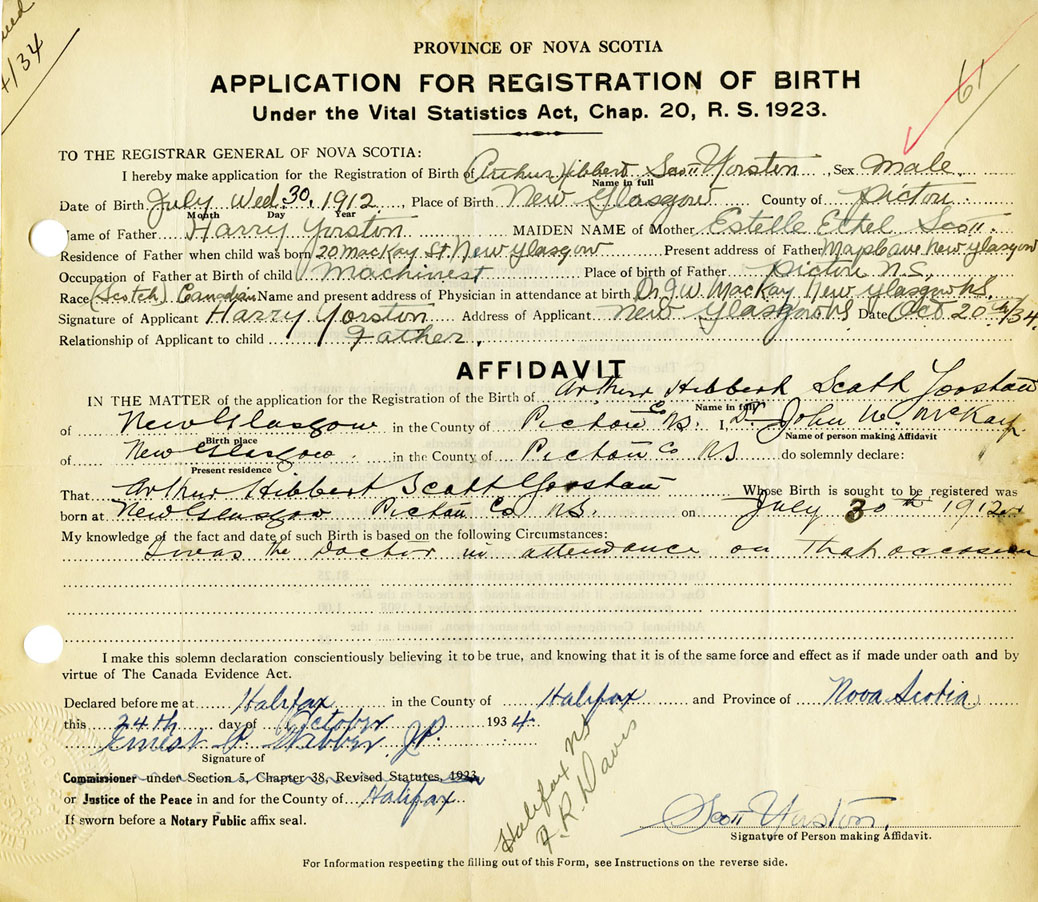 4/34
61
PROVINCE OF NOVA SCOTIA
APPLICATION FOR REGISTRATION OF BIRTH
Under the Vital Statistics Act, Chap. 20, R. S. 1923.
TO THE REGISTRAR GENERAL OF NOVA SCOTIA:
I hereby make application for the Registration of Birth of Arthur Hibbert Scott Yorston, Sex Male
Name in full
Date of Birth July Wed. 30, 1912, Place of Birth New Glasgow County of Pictou
Month Day Year
Name of Father Harry Yorston MAIDEN NAME of Mother Estelle Ethel Scott
Residence of Father when child was born 20 MacKay St. New Glasgow Present address of Father New Glasgow
Occupation of Father at Birth of child Machinest Place of birth of Father Pictou N.S.
Race (Scotch) Canadian Name and present address of Physician in attendance at birth Dr J.W. MacKay New Glasgow N.S.
Signature of Applicant Harry Yorston Address of Applicant New Glasgow N.S. Date Oct 20th/34
Relationship of Applicant to child Father.
AFFIDAVIT
IN THE MATTER of the application for the Registration of the Birth of Arthur Hibbert Scott Yorston
Name in full
of New Glasgow in the County of Pictou Co N.S. I, Dr John W. McKay
Birth place Name of person making Affidavit
of New Glasgow in the County of Pictou Co NS do solemnly declare:
Present residence
That Arthur Hibbert Scott Yorston Whose Birth is sought to be registered was
born at New Glasgow Pictou Co. N.S. on July 30th 1912
My knowledge of the fact and date of such Birth is based on the following Circumstances:
I was the Doctor in attendance on that occasion
I make this solemn declaration conscientiously believing it to be true, and knowing that it is of the same force and effect as if made under oath and by
virtue of The Canada Evidence Act.
Declared before me at Halifax in the County of Halifax and Province of Nova Scotia
this 24th day of October 1934
Ernest J.P.
Signature of
Commissioner under Section 5, Chapter 38, Revised Statutes, 1923
or Justice of the Peace in and for the County of Halifax
If sworn before a Notary Public affix seal.
Halifax NS
F. R. Davis
Scott Yorston.
Signature of Person making Affidavit.
For Information respecting the filling out of this Form, see Instructions on the reverse side.